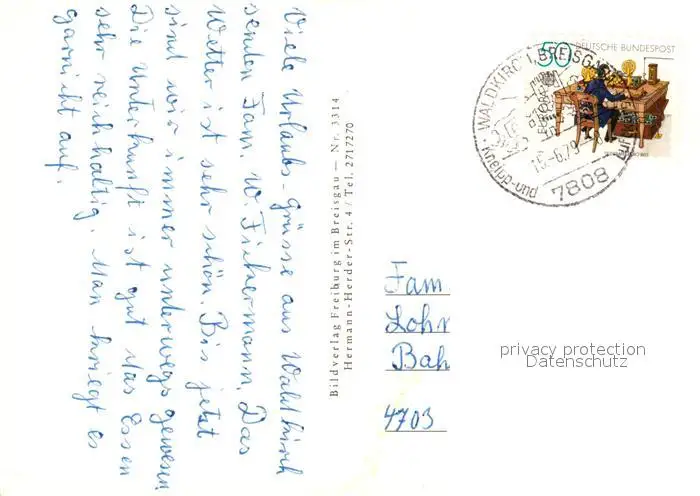 Viele Urlaubs-Grüsse aus Waldkirch
senden Fam. W. Das
Wetter ist sehr schön. Bis jetzt
sind wir immer unterwegs gewesen
Die Unterkunft ist gut das Essen
sehr reichhaltig. Man kriegt es
garnicht auf.
Bildverlag Freiburg im Breisgau — Nr. 3314
Hermann-Herder-Str. 4 / Tel. 2717270
50 DEUTSCHE BUNDESPOST
WALDKIRCH I, BREISGAU
-6.79
Kneipp- und
7808
Fam
Lohr
Bah
4703
privacy protection
Datenschutz